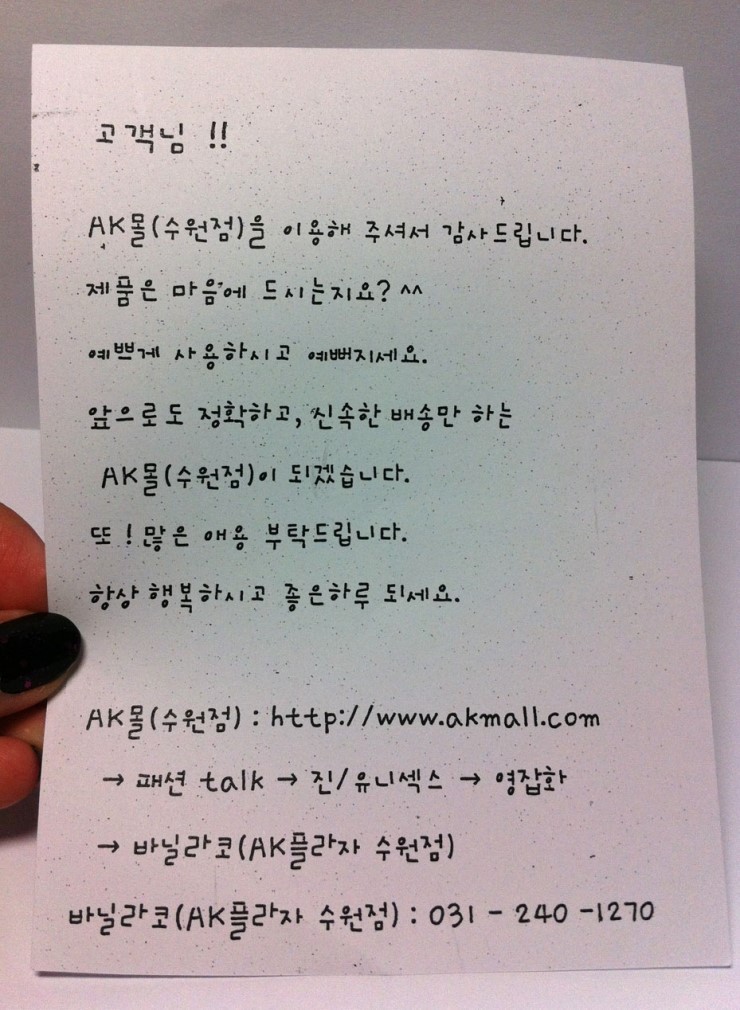 고객님 !!
AK몰(수원점)을 이용해 주셔서 감사드립니다.
제품은 마음에 드시는지요? ^^
예쁘게 사용하시고 예뻐지세요.
앞으로도 정확하고, 신속한 배송만 하는
AK몰(수원점)이 되겠습니다.
또! 많은 애용 부탁드립니다.
항상 행복하시고 좋은하루 되세요.
AK몰(수원점) : http://www.akmall.com
→ 패션 talk → 진/유니섹스 → 영잡화
→ 바닐라코(AK플라자 수원점)
바닐라코(AK플라자 수원점) : 031 - 240 -1270